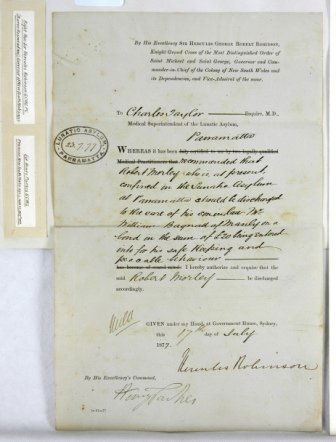 By His Excellency SIR HERCULES GEORGE ROBERT ROBINSON,
Knight Grand Cross of the Most Distinguished Order of
Saint Michael and Saint George, Governor and Com-
mander-in-Chief of the Colony of New South Wales and
its Dependencies, and Vice-Admiral of the same.
To Charles Taylor Esquire, M.D.,
Medical Superintendent of the Lunatic Asylum,
Parramatta
LUNATIC ASYLUM
23.7.77
PARRAMATTA
WHEREAS it has been duly certified to me by two legally qualified
Medical Practitioners that recommended that
Robert Morley who is at present
confined in the Lunatic Asylum
at Parramatta should be discharged
to the care of his
William Bagnall of Manly on a
bond in the sum of £20 being entered
into for his safe keeping and
peaceable behaviour
has become of sound mind. I hereby authorize and require that the
said Robert Morley be discharged
accordingly.
GIVEN under my Hand, at Government House, Sydney,
this 17th day of July
1877.
Hercules Robinson
By His Excellency's Command,
Henry Parkes